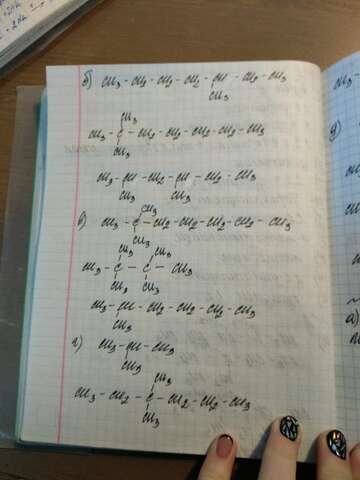 б) CH3 - CH2 - CH2 - CH2 - CH - CH2 - CH3
CH3
CH3
CH3 - C - CH2 - CH2 - CH2 - CH2 - CH3
CH3
CH3 - CH - CH2 - CH - CH2 - CH3
CH3 CH3
CH3
в) CH3 - C - CH2 - CH2 - CH2 - CH2 - CH3
CH3
CH3 CH3
CH3 - C - C - CH3
CH3 CH3
CH3 - CH - CH2 - CH2 - CH2 - CH3
CH3
г) CH3 - CH - CH3
CH3
CH3
CH3 - CH2 - C - CH2 - CH2 - CH3
CH3
CH3
д)
а)